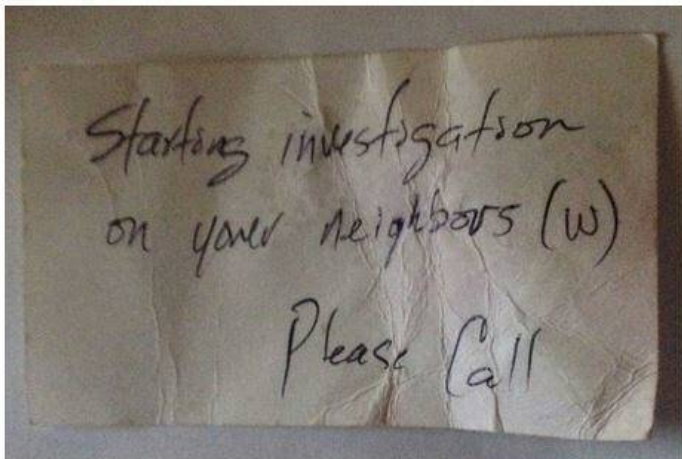 Starting investigation
on your neighbors (W)
Please Call